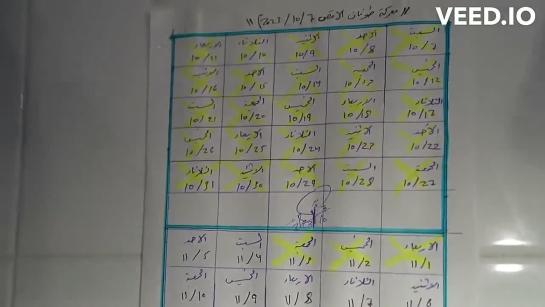 VEED.IO
معركة طوفان الاقصى 7/10/2023
السبت الاحد الاثنين الثلاثاء الاربعاء
10/7 10/8 10/9 10/10 10/11
الخميس الجمعة السبت الاحد الاثنين
10/12 10/13 10/14 10/15 10/16
الثلاثاء الاربعاء الخميس الجمعة السبت
10/17 10/18 10/19 10/20 10/21
الاحد الاثنين الثلاثاء الاربعاء الخميس
10/22 10/23 10/24 10/25 10/26
الجمعة السبت الاحد الاثنين الثلاثاء
10/28 10/29 10/30 10/31
الاربعاء الخميس الجمعة السبت الاحد
11/1 11/2 11/3 11/4 11/5
الاثنين الثلاثاء الاربعاء الخميس الجمعة
11/6 11/7 11/8 11/9 11/10